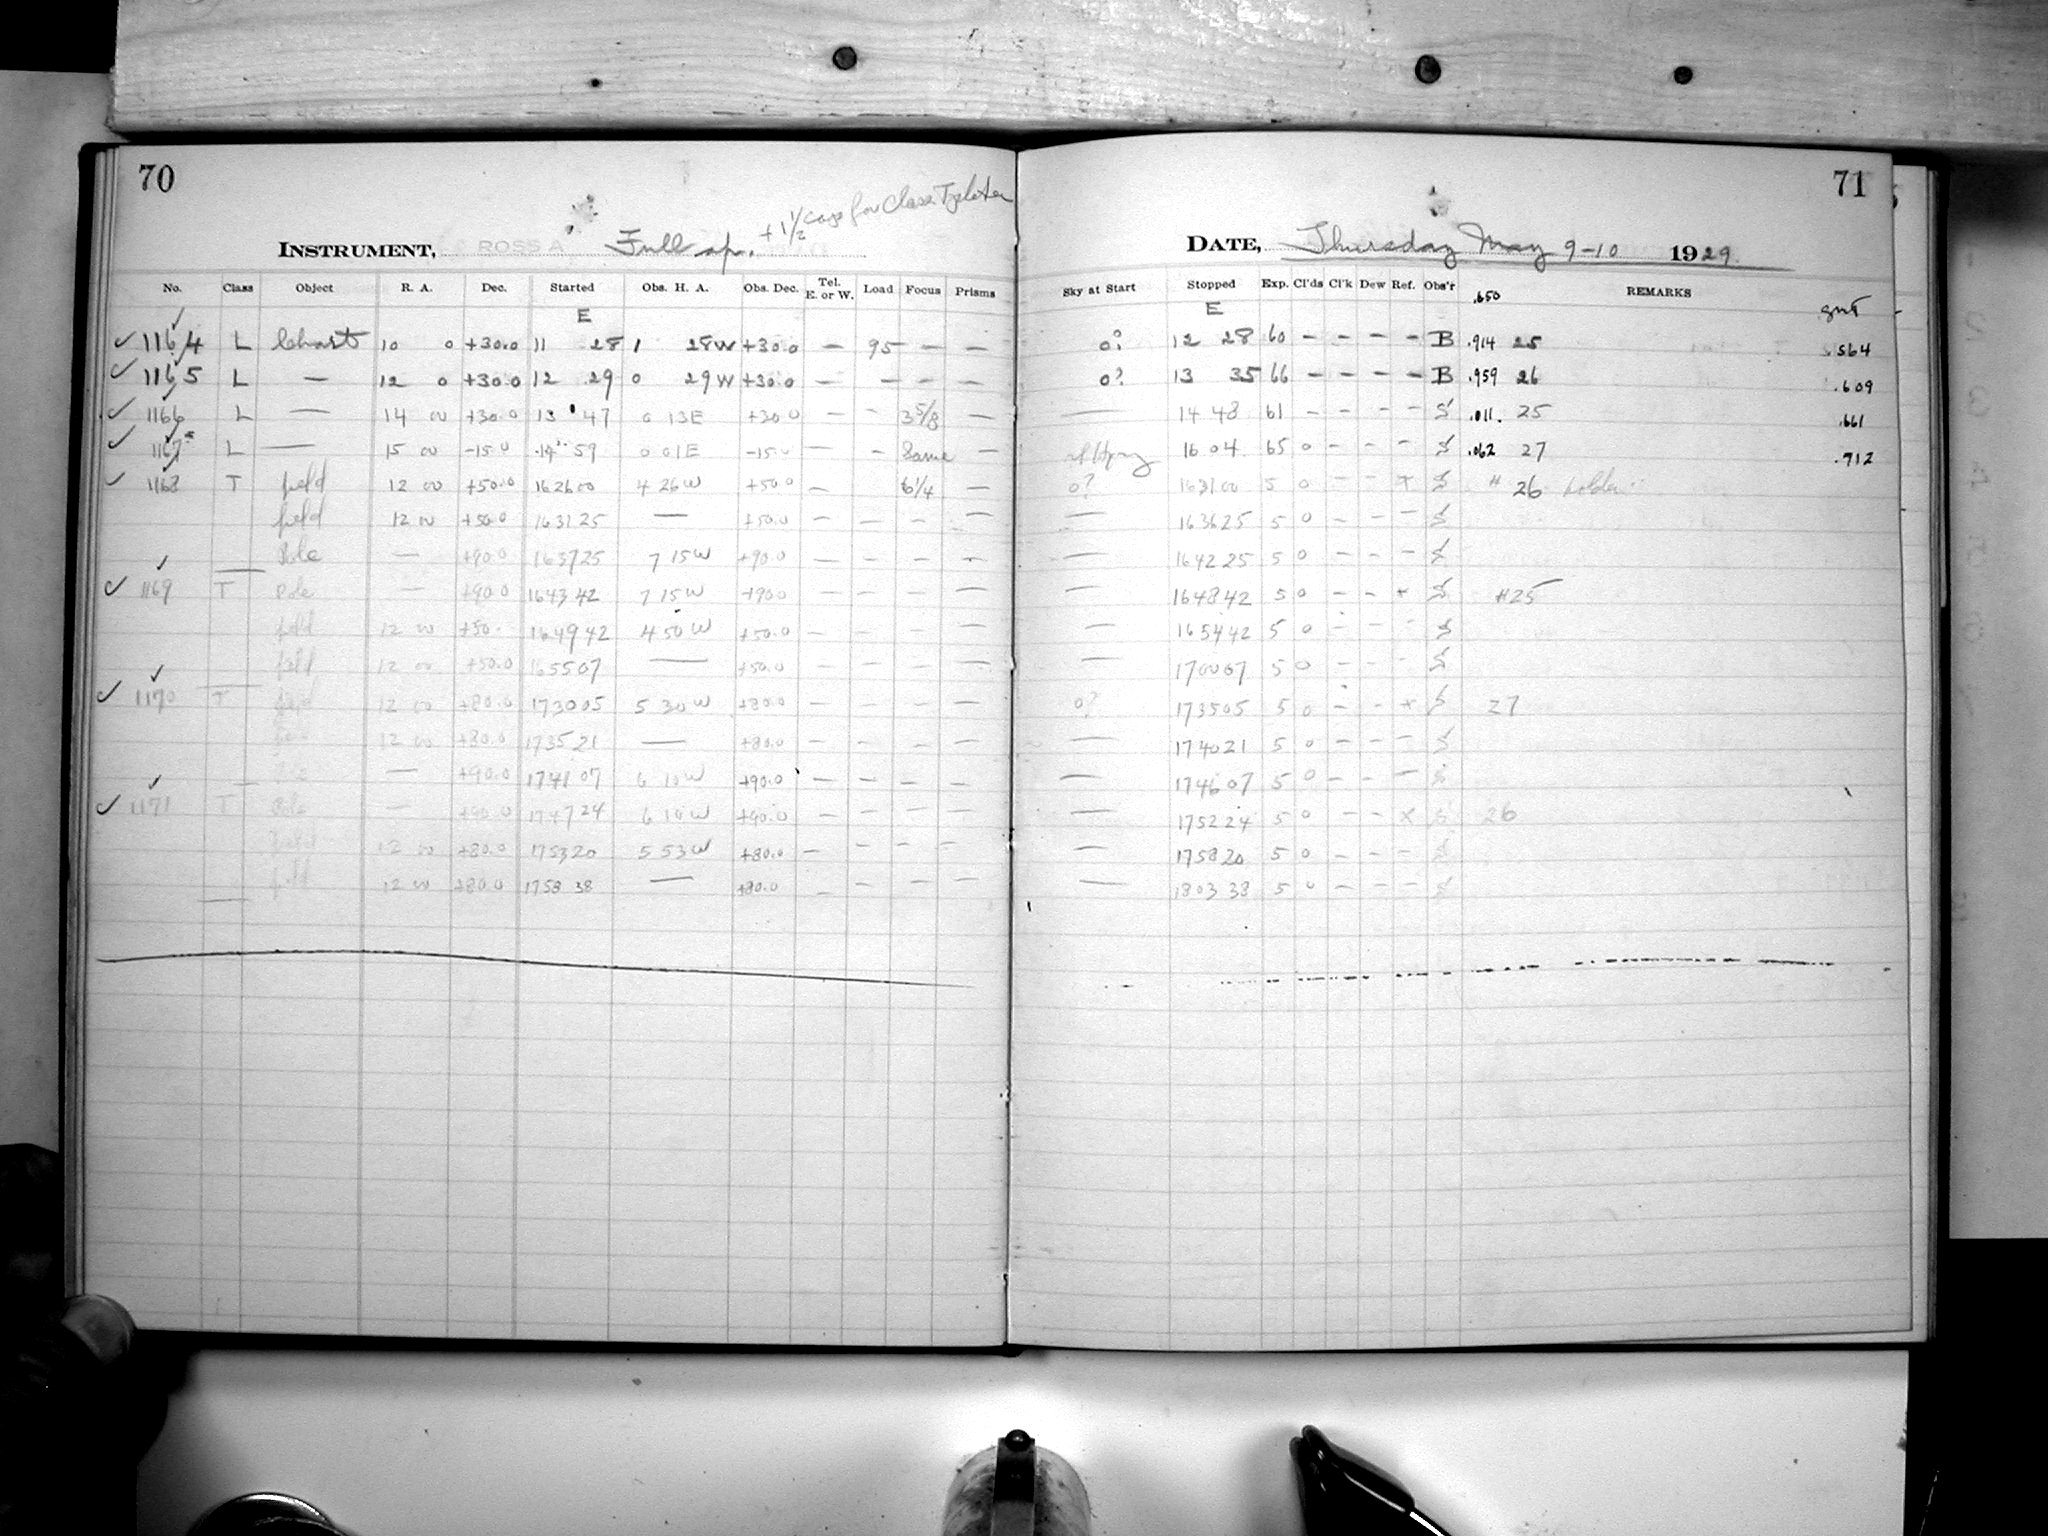 70
INSTRUMENT, ROSS A Full ap. + 1 1/2 cap for Class T plates
No. Class Object R. A. Dec. Started Obs. H. A. Obs. Dec. Tel. E. or W. Load Focus Prisms
E
✓ 1164 L Chart 10 0 +30.0 11 28 1 28W +30.0 — 95 — —
✓ 1165 L — 12 0 +30.0 12 29 0 29W +30.0 — — — —
✓ 1166 L — 14 00 +30.0 13 47 0 13E +30.0 — — 3 5/8 —
✓ 1167* L — 15 00 -15.0 14 59 0 01E -15.0 — - Same —
✓ 1168 T field 12 00 +50.0 16 26 00 4 26W +50.0 — 6 1/4 —
field 12 00 +50.0 16 31 25 — +50.0 — — — —
Pole — +90.0 16 37 25 7 15W +90.0 — — — —
✓ 1169 T Pole — +90.0 16 43 42 7 15W +90.0 — — — —
field 12 00 +50. 16 49 42 4 50W +50.0 — — — —
field 12 00 +50.0 16 55 07 — +50.0 — — — —
✓ 1170 T field 12 00 +80.0 17 30 05 5 30W +80.0 — — — —
12 00 +80.0 17 35 21 — +80.0 — — — —
— +90.0 17 41 07 6 10W +90.0 — — — —
✓ 1171 T Pole — +90.0 17 47 24 6 10W +90.0 — — — —
field 12 00 +80.0 17 53 20 5 53W +80.0 — — — —
field 12 00 +80.0 17 58 38 — +80.0 — — — —
71
DATE, Thursday May 9-10 1929
Sky at Start Stopped Exp. Cl'ds Cl'k Dew Ref. Obs'r .650 REMARKS
E GMT
0? 12 28 60 — — — — B .914 25 .564
0? 13 35 66 — — — — B .959 26 .609
— 14 48 61 — — — — S .011. 25 .661
16 04 65 0 — — — S .062 27 .712
0? 16 31 00 5 0 — — x S # 26 holder
— 16 36 25 5 0 — — — S
— 16 42 25 5 0 — — — S
— 16 48 42 5 0 — — x S #25
— 16 54 42 5 0 — — — S
— 17 00 07 5 0 — — — S
0? 17 35 05 5 0 — — x S 27
— 17 40 21 5 0 — — — S
— 17 46 07 5 0 — — — S
— 17 52 24 5 0 — — x S 26
— 17 58 20 5 0 — — — S
— 18 03 38 5 0 — — — S